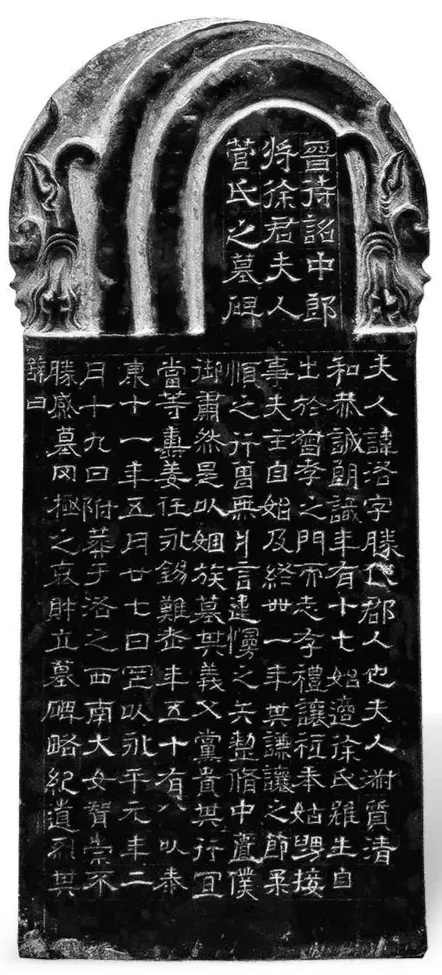 晉待詔中郎
將徐君夫人
菅氏之墓碑
夫人諱洛字勝代郡人也夫人淑質清
和恭誠朗識年有十七始適徐氏雖生自
出於督孝之門而志存禮讓祗奉姑舅接
事夫主自始及終卅一年其謙讓之節柔
順之行曾無片言違慢之矢整脩中匱僕
御肅然是以姻族慕其義父黨貴其行宜
當等壽姜任永錫難老年五十有八以泰
康十一年五月廿七日罡以永平元年二
月十九日附葬于洛之西南大女智崇不
勝感慕罔極之哀財立墓碑略紀遺烈其
辭曰